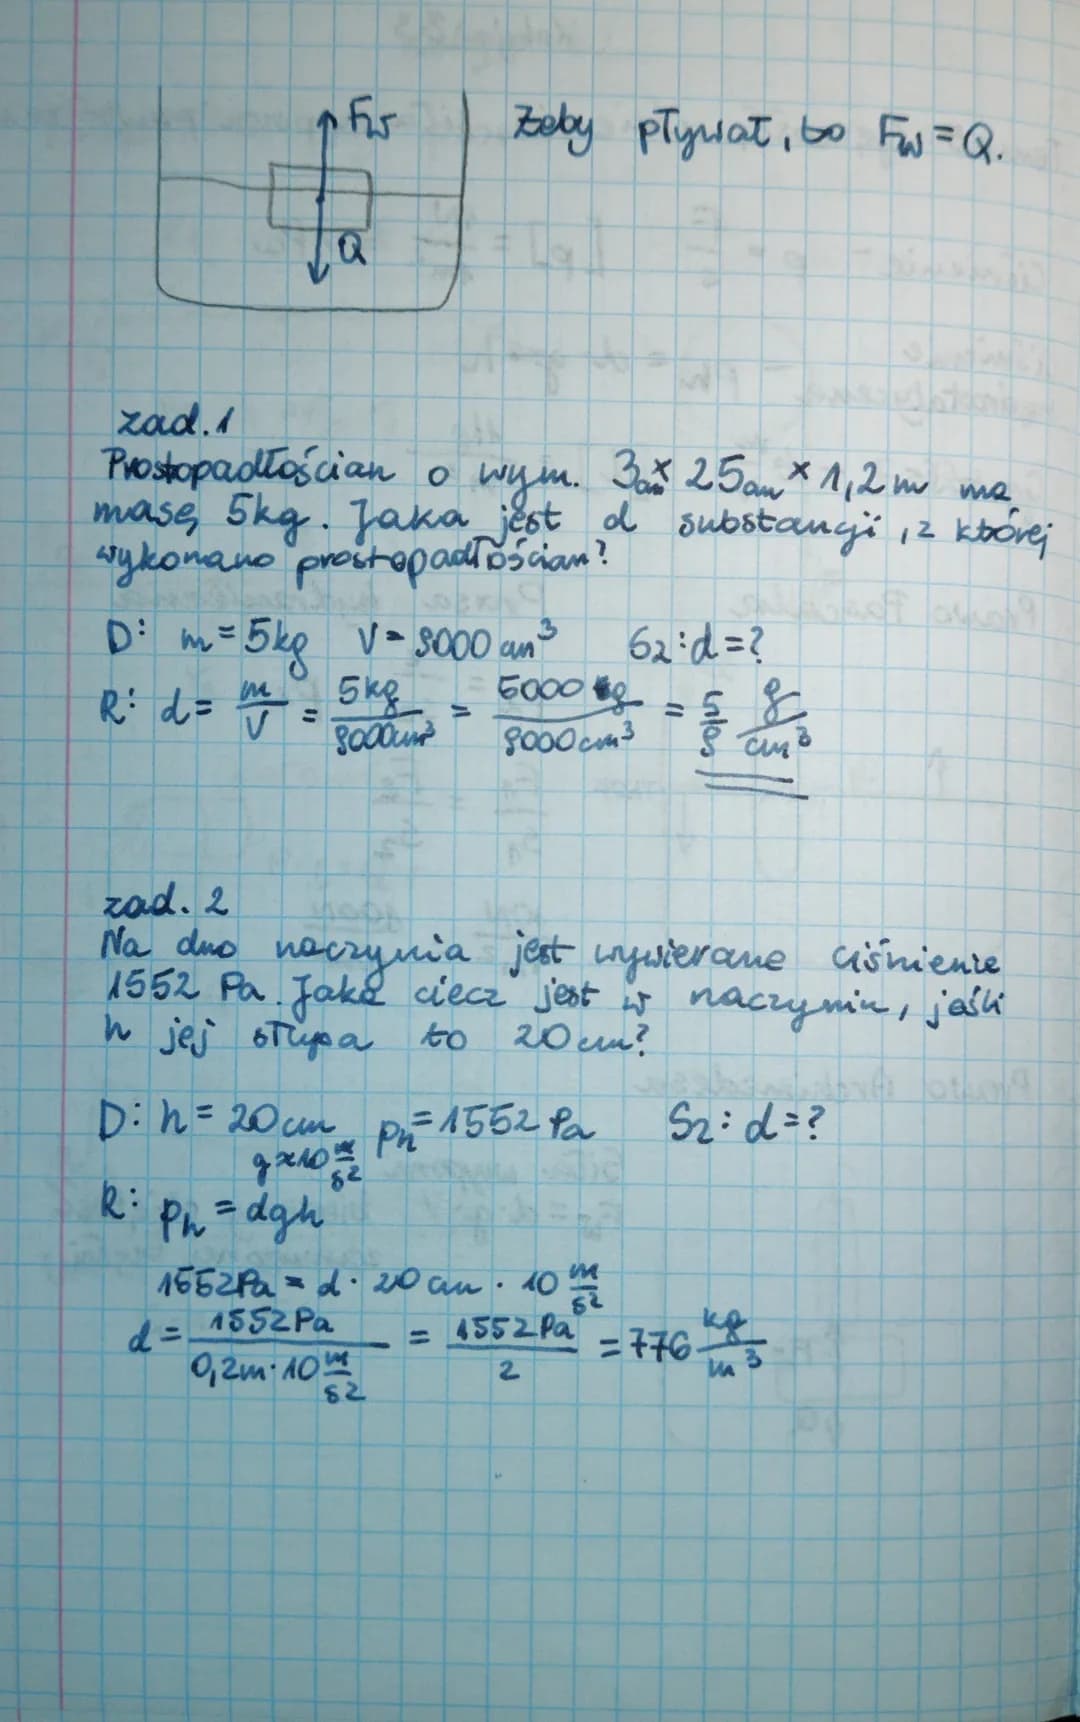 Fw
Żeby pływał, to Fw = Q.
Q
zad. 1
Prostopadłościan o wym. 3cm × 25cm × 1,2m ma
masę 5kg. Jaka jest d substancji, z której
wykonano prostopadłościan?
D: m = 5kg V = 9000 cm³ Sz: d = ?
R: d = m/V = 5kg/9000cm³ = 5000 g/9000cm³ = 5/9 g/cm³
zad. 2
Na dno naczynia jest wywierane ciśnienie
1552 Pa. Jaka ciecz jest w naczyniu, jeśli
h jej słupa to 20cm?
D: h = 20cm pₕ = 1552 Pa Sz: d = ?
g ≈ 10 m/s²
R: pₕ = dgh
1552Pa = d · 20 cm · 10 m/s²
d = 1552Pa/0,2m·10 m/s² = 1552Pa/2 = 776 kg/m³